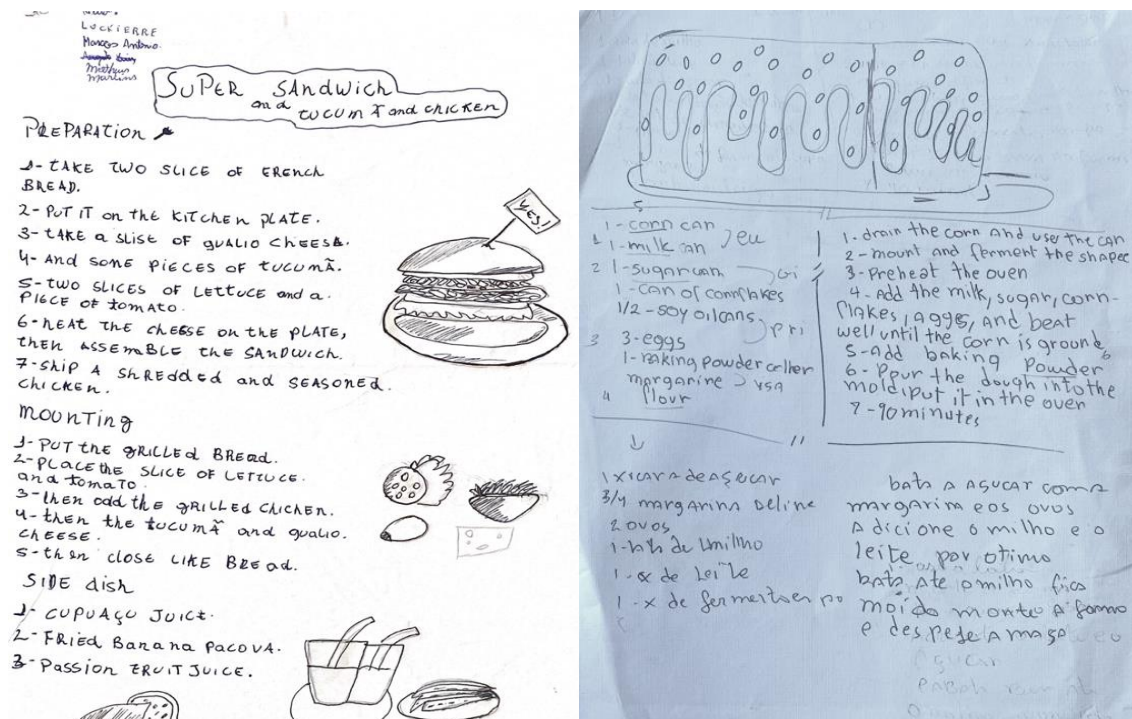 LUCKIERRE
Marcos Antonio.
Matheus
Martins
SUPER SANDWICH
and tucumã and chicken
PREPARATION
1- TAKE TWO SLICE OF FRENCH
BREAD.
2- PUT IT ON the KITCHEN PLATE.
3- TAKE a SLISE OF QUALIO CHEESE.
4- AND SONE PIECES OF tucumÃ.
5- TWO SLICES OF LETTUCE and a
PIECE OF tomATO.
6- HEAT THE CHEESE ON the PLATE,
then ASSEMABLE tHE SANDWICH.
7- SHIP A SHREDDED and SEASONED
CHICKEN.
YES!
MOUNTING
1- PUT the GRILLED BREad.
2- PLACE the SLICE OF LETTUCE.
and tomato.
3- then add the GRILLED CHICKEN.
4- then the tucumÃ and qualio.
CHEESE.
5- then CLOSE LIKE BREad.
SIDE dish
1- CUPUAÇU JUICE.
2- FRIED Banana PACOVA.
3- PASSION FRUIT JUICE.
1- corn can
1- milk can
eu
2 1-sugar can
1- can of cornflakes
1/2- soy oil cans
pri
3 3-eggs
1- baking powder
margarine
4 flour
1- drain the corn And use the can
2- mount and ferment the shapee
3- Preheat the oven
4- Add the milk, sugar, corn-
flakes, agges, and beat
well until the corn is ground
5- add baking Powder
6- Pour the dough into the
mold, put it in the oven
7- 90 minutes
1 xicara de açucar
3/4 margarina Deline
2 ovos
1- lata de milho
1- x de Leite
1- x de fermento en po
bata a açucar com a
margarina e os ovos
Adicione o milho e o
leite por otimo
bata ate o milho fica
moido monte a forma
e despeje a masa